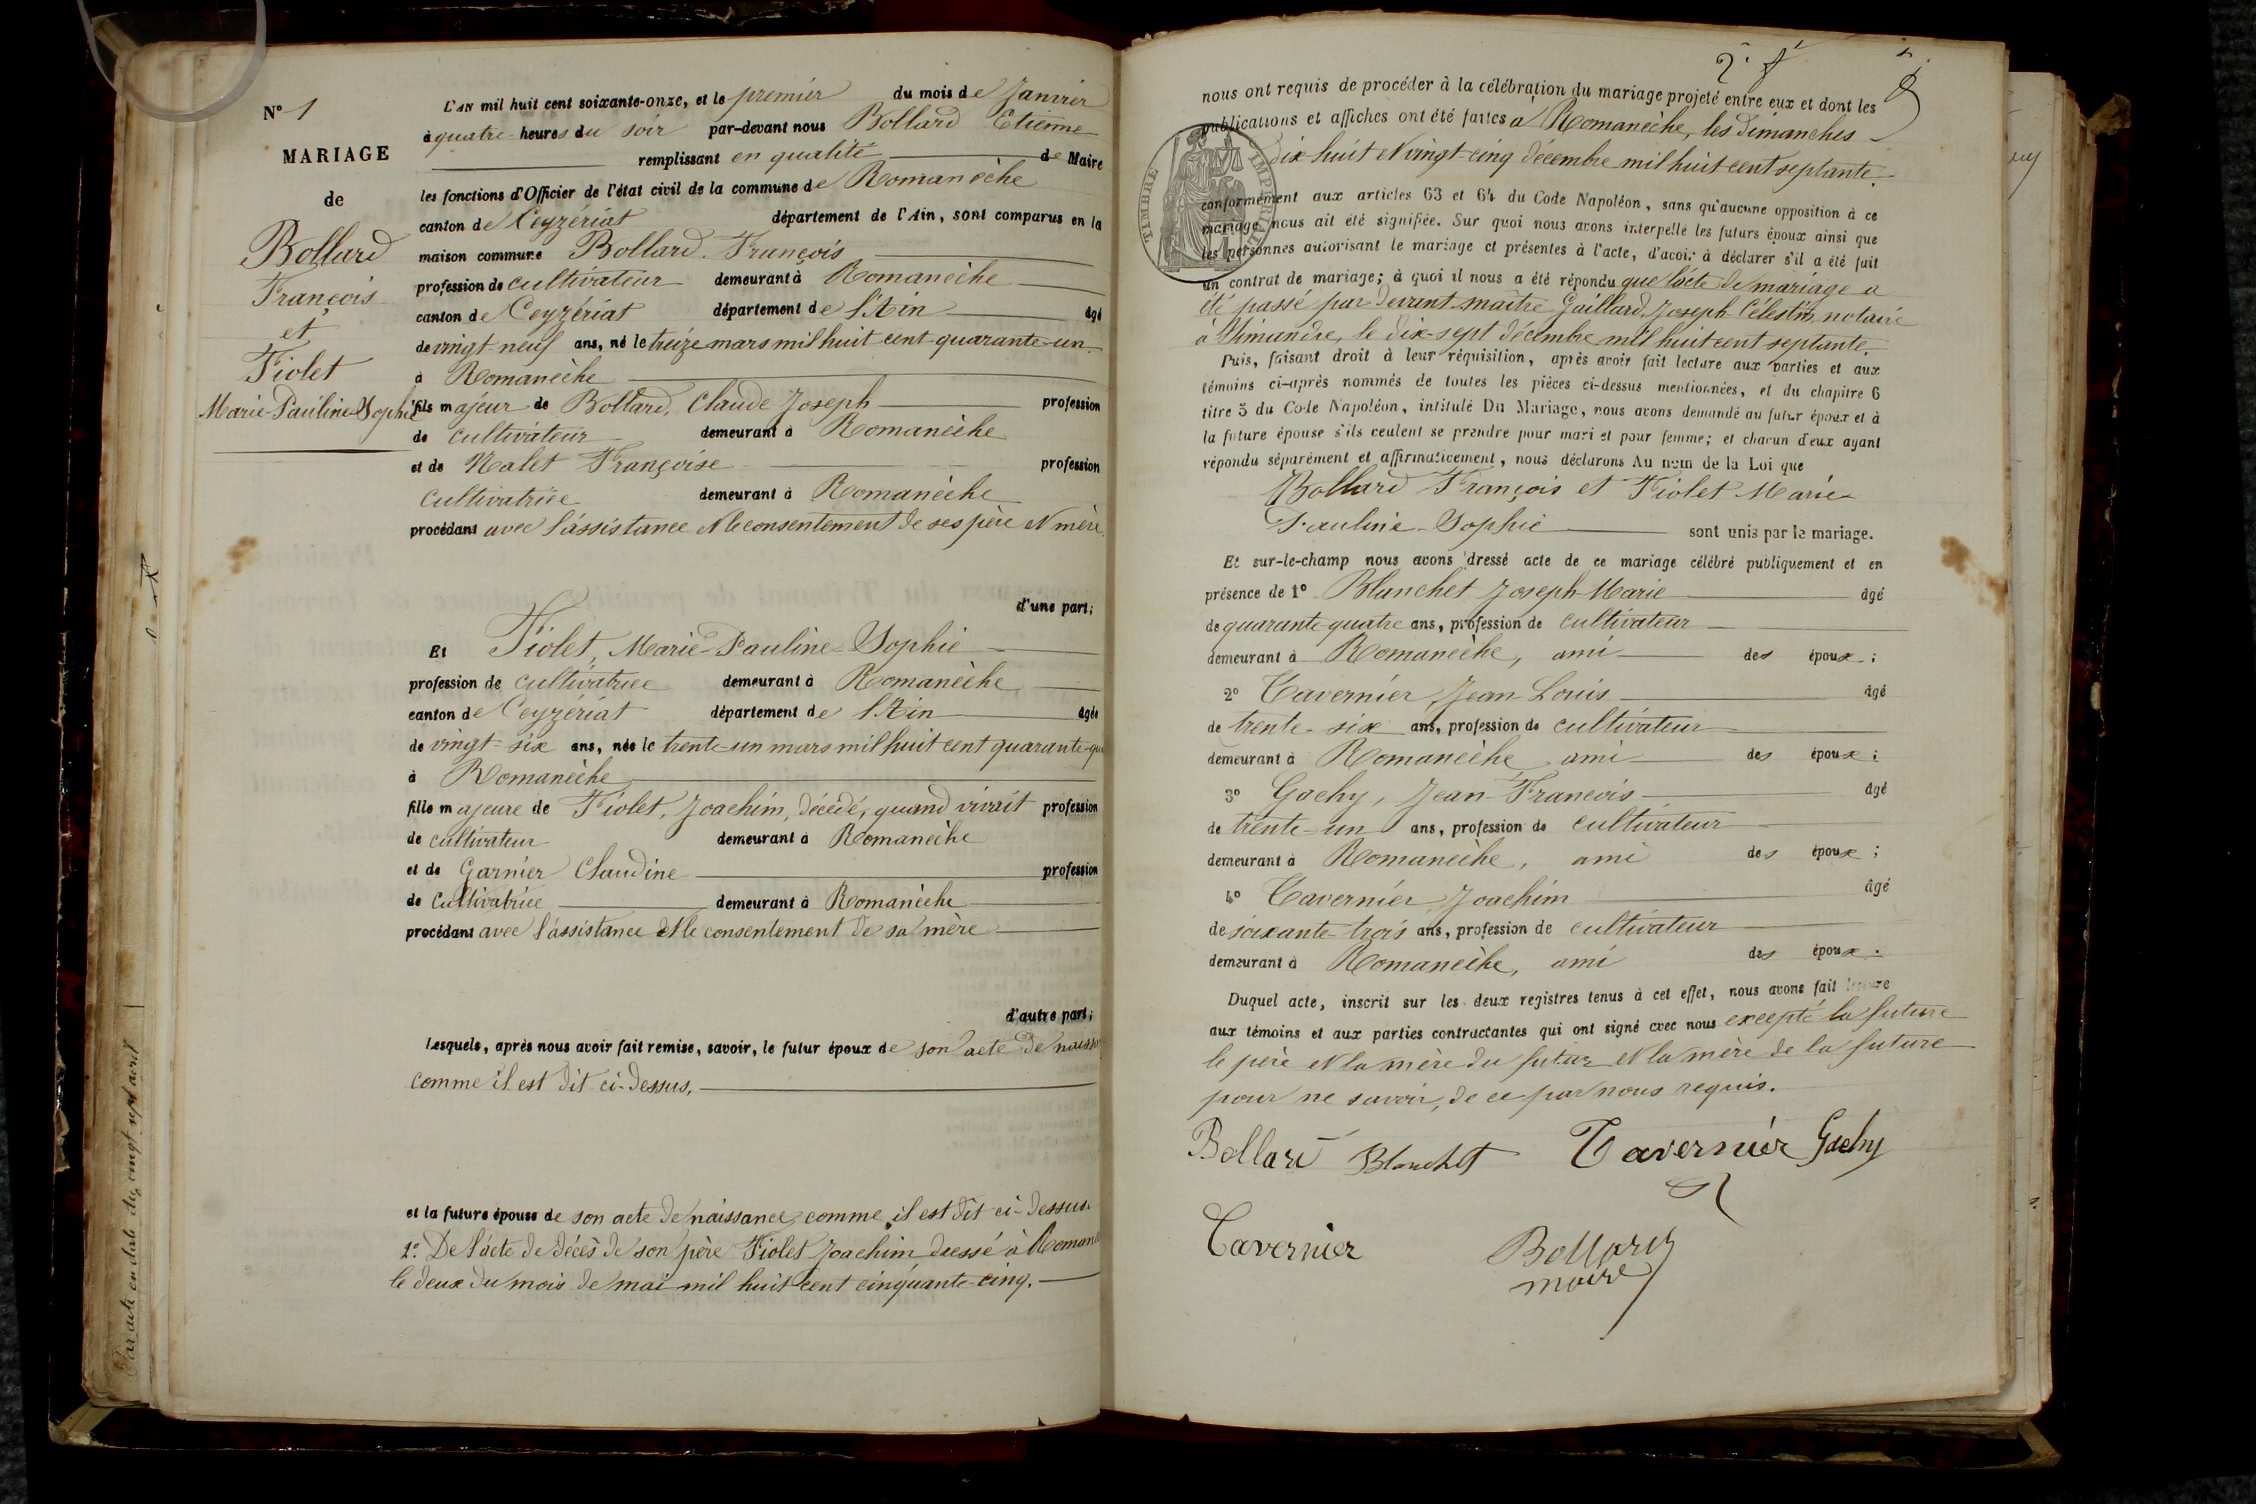 N° 1
MARIAGE
de
Bollard
François
et
Fiolet
Marie-Pauline-Sophie
L'AN mil huit cent soixante-onze, et le premier du mois de Janvier
à quatre heures du soir par-devant nous Bollard Etienne
remplissant en qualité de Maire
les fonctions d'Officier de l'état civil de la commune de Romanèche
canton de Ceyzériat département de l'Ain, sont comparus en la
maison commune Bollard François
profession de cultivateur demeurant à Romanèche
canton de Ceyzériat département de l'Ain âgé
de vingt-neuf ans, né le treize mars mil huit cent quarante-un
à Romanèche
fils majeur de Bollard, Claude Joseph profession
de cultivateur demeurant à Romanèche
et de Nalet Françoise profession
cultivatrice demeurant à Romanèche
procédant avec l'assistance et le consentement de ses père et mère
d'une part;
Et Fiolet, Marie-Pauline-Sophie
profession de cultivatrice demeurant à Romanèche
canton de Ceyzériat département de l'Ain âgée
de vingt-six ans, née le trente-un mars mil huit cent quarante-qu
à Romanèche
fille majeure de Fiolet, Joachim, décédé, quand vivait profession
de cultivateur demeurant à Romanèche
et de Garnier Claudine profession
de Cultivatrice demeurant à Romanèche
procédant avec l'assistance et le consentement de sa mère
d'autre part;
Lesquels, après nous avoir fait remise, savoir, le futur époux de son acte de naiss
comme il est dit ci-dessus.
et la future épouse de son acte de naissance, comme il est dit ci-dessus.
2° De l'acte de décès de son père Fiolet Joachim dressé à Roman
le deux du mois de mai mil huit cent cinquante-cinq.
Par acte en date du vingt sept avril
nous ont requis de procéder à la célébration du mariage projeté entre eux et dont les
publications et affiches ont été faites à Romanèche, les dimanches
dix huit et vingt-cinq décembre mil huit cent septante
TIMBRE IMPÉRIAL
conformément aux articles 63 et 64 du Code Napoléon, sans qu'aucune opposition à ce
mariage nous ait été signifiée. Sur quoi nous avons interpellé les futurs époux ainsi que
les personnes autorisant le mariage et présentes à l'acte, d'avoir à déclarer s'il a été fait
un contrat de mariage; à quoi il nous a été répondu que l'acte de mariage a
été passé par devant maître Gaillard, Joseph Célestin, notaire
à Simandre, le dix-sept décembre mil huit cent septante.
Puis, faisant droit à leur réquisition, après avoir fait lecture aux parties et aux
témoins ci-après nommés de toutes les pièces ci-dessus mentionnées, et du chapitre 6
titre 5 du Code Napoléon, intitulé Du Mariage, nous avons demandé au futur époux et à
la future épouse s'ils veulent se prendre pour mari et pour femme; et chacun d'eux ayant
répondu séparément et affirmativement, nous déclarons Au nom de la Loi que
Bollard François et Fiolet Marie
Pauline-Sophie sont unis par le mariage.
Et sur-le-champ nous avons dressé acte de ce mariage célébré publiquement et en
présence de 1° Blanchet Joseph-Marie âgé
de quarante-quatre ans, profession de cultivateur
demeurant à Romanèche, ami des époux;
2° Tavernier, Jean-Louis âgé
de trente-six ans, profession de cultivateur
demeurant à Romanèche ami des époux;
3° Gachy, Jean-François âgé
de trente-un ans, profession de cultivateur
demeurant à Romanèche, ami des époux;
4° Tavernier Joachim âgé
de soixante-trois ans, profession de cultivateur
demeurant à Romanèche, ami des époux.
Duquel acte, inscrit sur les deux registres tenus à cet effet, nous avons fait lecture
aux témoins et aux parties contractantes qui ont signé avec nous excepté la future
le père et la mère du futur et la mère de la future
pour ne savoir, de ce par nous requis.
Bollard Blanchet Tavernier Gachy
Tavernier Bollard
maire